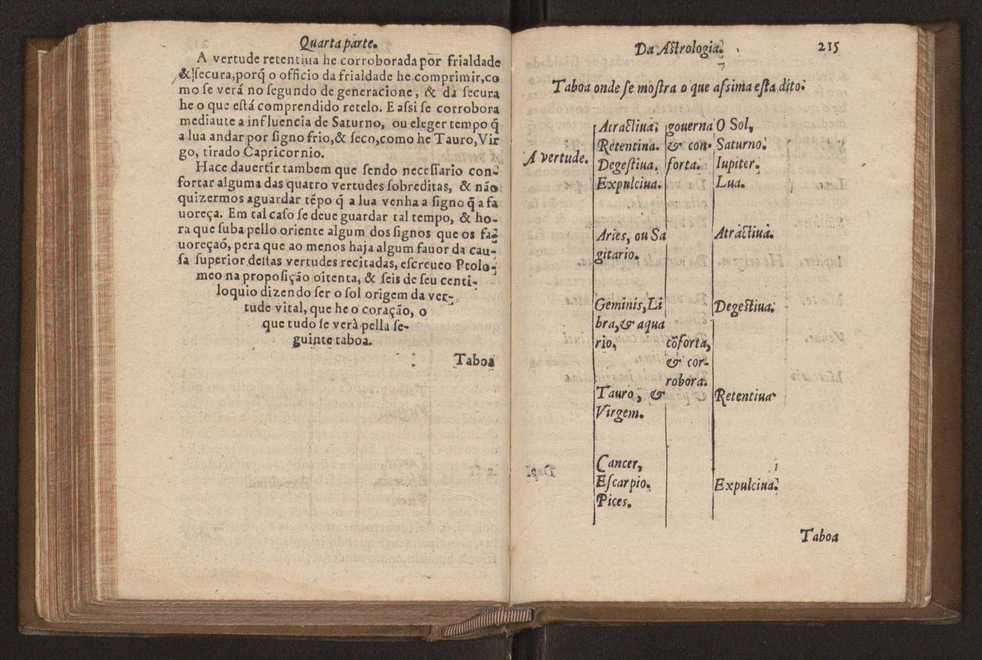 Quarta parte.
A vertude retentiua he corroborada por frialdade
& secura, porq̃ o officio da frialdade he comprimir, co
mo se verá no segundo de generacione, & da secura
he o que está comprendido retelo. E assi se corrobora
mediaute a influencia de Saturno, ou eleger tempo q̃
a lua andar por signo frio, & seco, como he Tauro, Vir
go, tirado Capricornio.
Hace dauertir tambem que sendo necessario con-
fortar alguma das quatro vertudes sobreditas, & não
quizermos aguardar tẽpo q̃ a lua venha a signo q̃ a fa
uoreça. Em tal caso se deue guardar tal tempo, & ho-
ra que suba pello oriente algum dos signos que os fa-
uoreçaõ, pera que ao menos haja algum fauor da cau-
sa superior destas vertudes recitadas, escreueo Ptolo-
meo na proposição oitenta, & seis de seu centi-
loquio dizendo ser o sol origem da ver-
tude vital, que he o coração, o
que tudo se verà pella se-
guinte taboa.
Taboa
Da Astrologia. 215
Taboa onde se mostra o que assima esta dito.
Atractiua. gouerna O Sol,
A vertude. Retentina. & con- Saturno.
Degestiua. forta. Iupiter.
Expulciua. Lua.
Aries, ou Sa Atractiua.
gitario.
Geminis, Li Degestiua.
bra, & aqua
rio, cõforta,
& cor-
robora.
Tauro, & Retentiua
Virgem.
Cancer,
Escarpio. Expulciua.
Pices.
Taboa